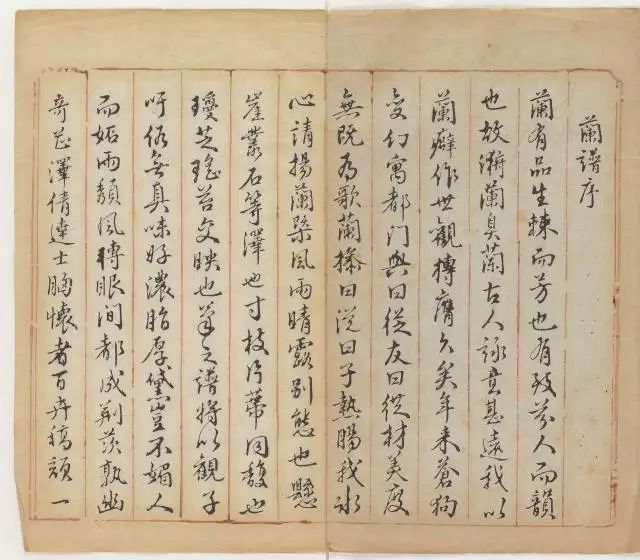 蘭譜序
蘭有品生棘而芳也有致芬人而韻
也故漪蘭臭蘭古人詠意甚遠我以
蘭癖作世觀摶膺久矣年來蒼狗
變幻寓都門與曰從友曰從材美度
無既為歌蘭操曰從曰子熱腸我冰
心請揚蘭槩風雨晴露別態也懸
崖叢石等澤也寸枝片蒂同馥也
瓊芝瑤苔交映也筆之譜將以觀子
吁俗無真味好濃脂厚黛豈不媚人
而妬雨顏風轉眼間都成荆茨孰幽
奇芷澤倩達士胸懷者百卉稿顏一